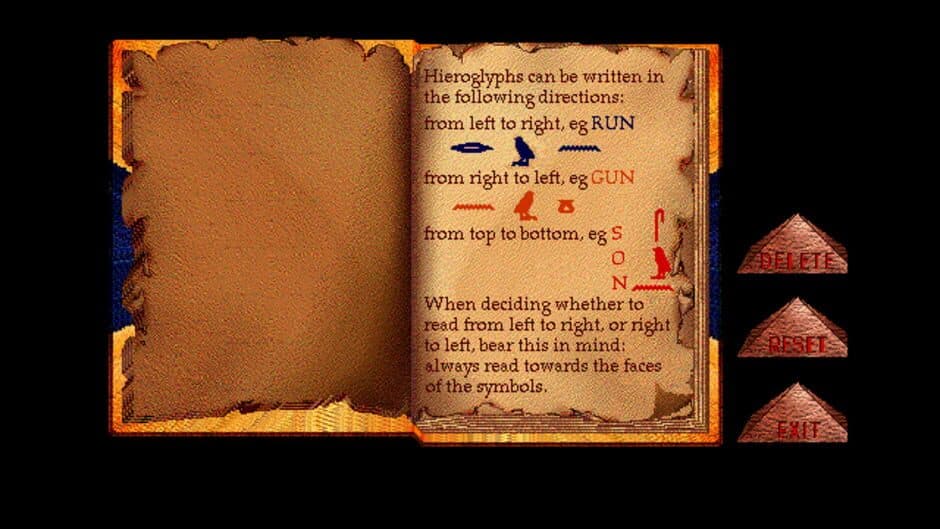 Hieroglyphs can be written in
the following directions:
from left to right, eg RUN
from right to left, eg GUN
from top to bottom, eg S
O
N
When deciding whether to
read from left to right, or right
to left, bear this in mind:
always read towards the faces
of the symbols.
DELETE
RESET
EXIT